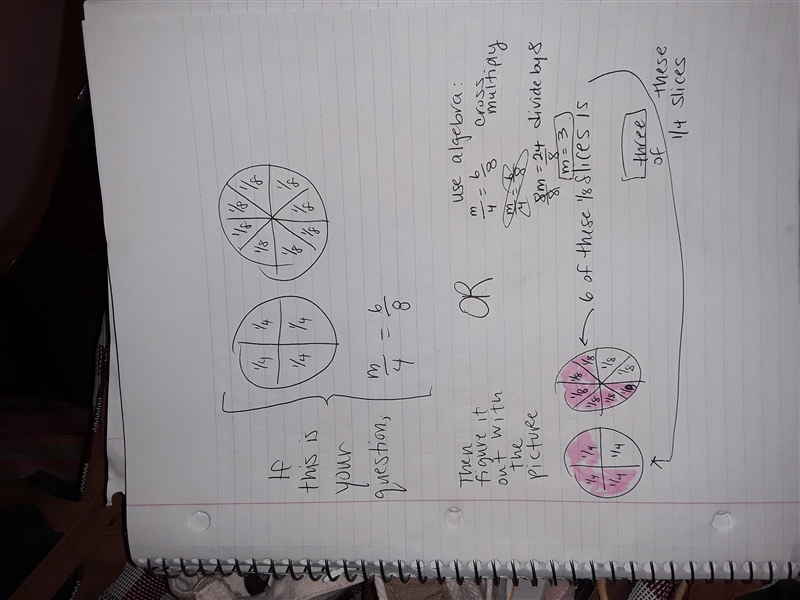 If
this is
your
question,
1/4 1/4
1/4 1/4
1/8 1/8 1/8 1/8
1/8 1/8 1/8 1/8
m/4 = 6/8
Then
figure it
out with
the
picture
OR
use algebra:
m/4 = 6/8 cross
multiply
m/4 = 6/8
8m/8 = 24/8 divide by 8
m = 3
1/4 1/4
1/4 1/4
1/8 1/8 1/8 1/8
1/8 1/8 1/8 1/8
6 of these 1/8 slices is
three of these
1/4 slices